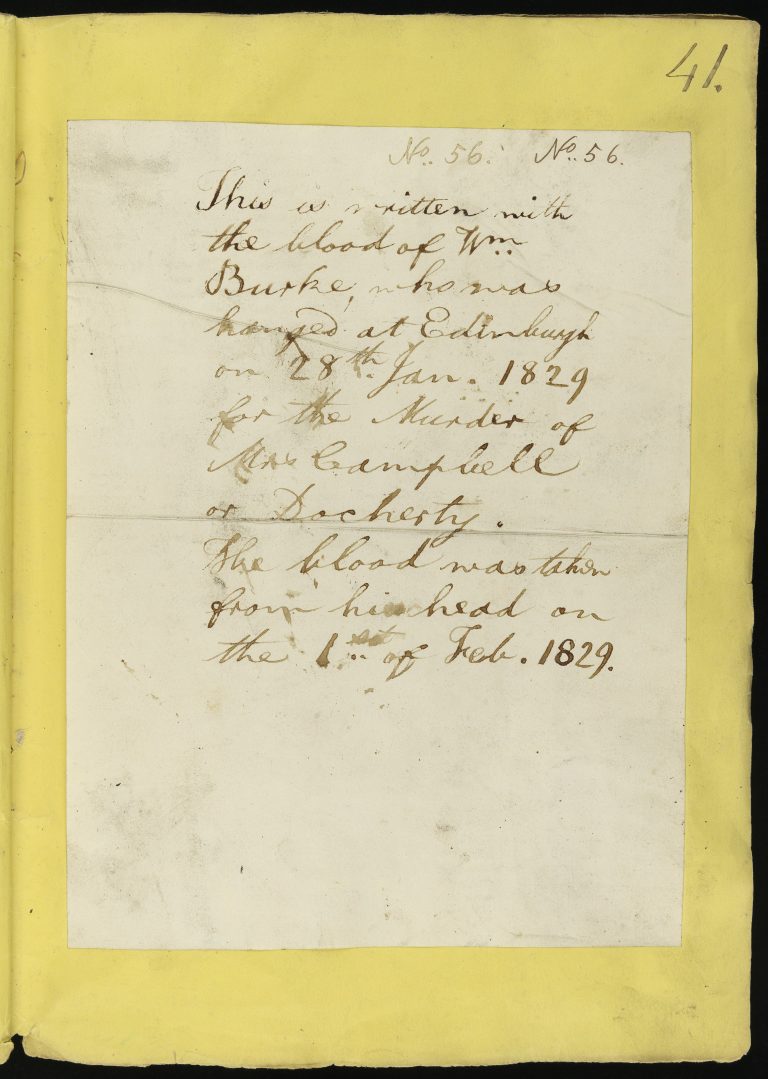 41.
No. 56. No. 56.
This is written with
the blood of Wm
Burke, who was
hanged at Edinburgh
on 28th Jan. 1829
for the Murder of
Mrs Campbell
or Docherty.
The blood was taken
from his head on
the 1st of Feb. 1829.